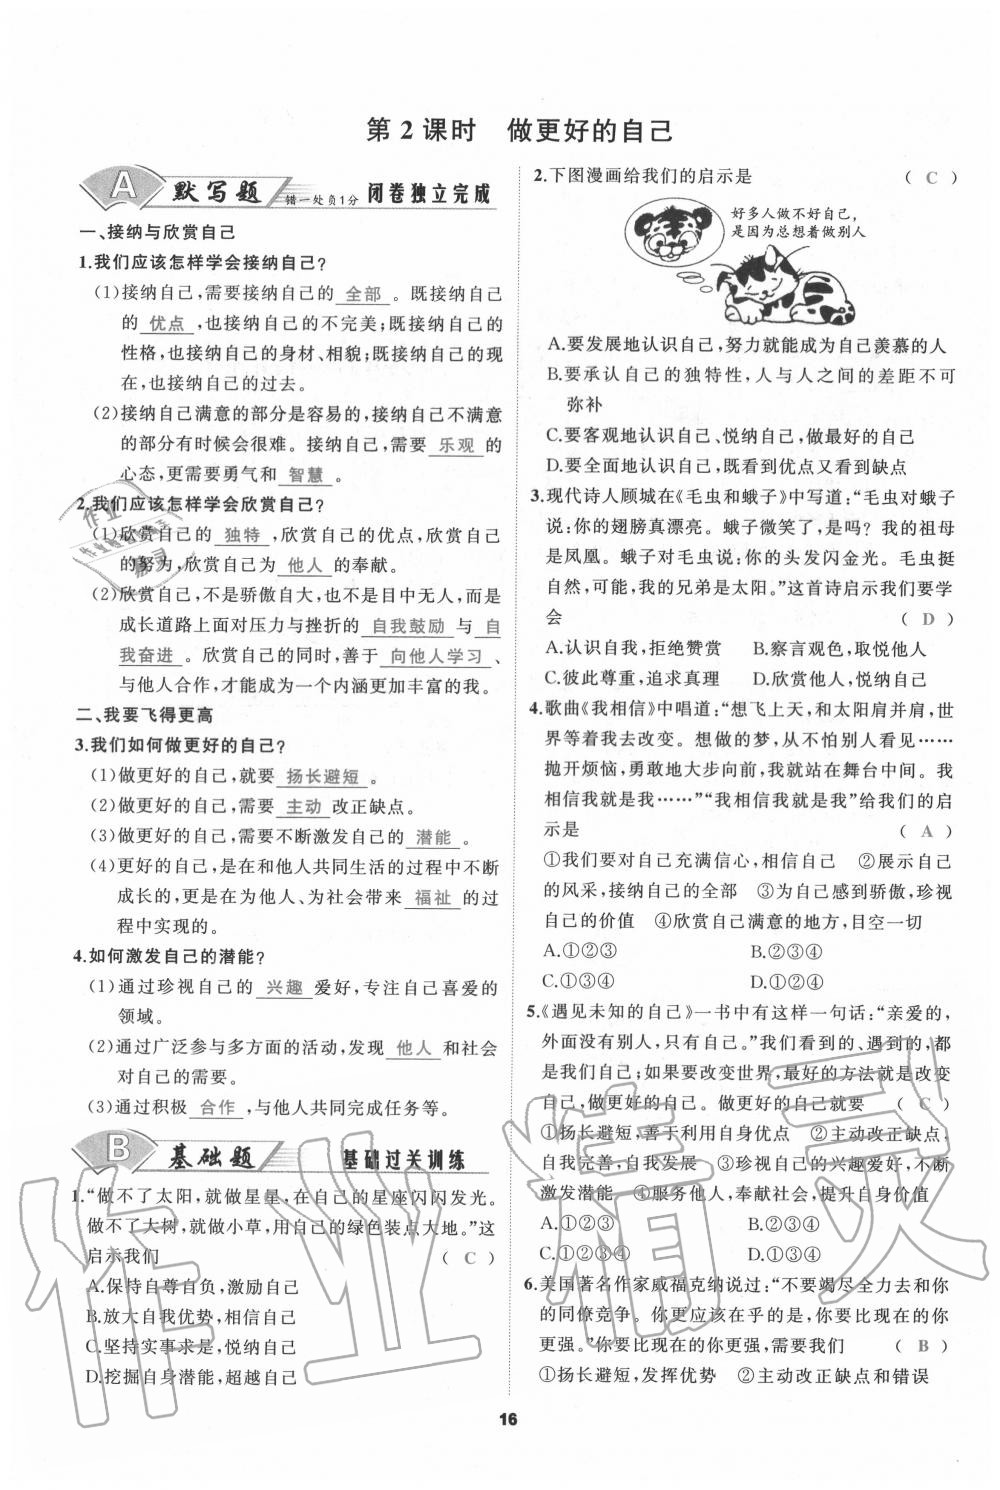 第2课时 做更好的自己
A 默写题 错一处负1分 闭卷独立完成
一、接纳与欣赏自己
1.我们应该怎样学会接纳自己?
(1)接纳自己,需要接纳自己的 全部 。既接纳自己
的 优点 ,也接纳自己的不完美;既接纳自己的
性格,也接纳自己的身材、相貌;既接纳自己的现
在,也接纳自己的过去。
(2)接纳自己满意的部分是容易的,接纳自己不满意
的部分有时候会很难。接纳自己,需要 乐观 的
心态,更需要勇气和 智慧 。
2.我们应该怎样学会欣赏自己?
(1)欣赏自己的 独特 ,欣赏自己的优点,欣赏自己
的努力,欣赏自己为 他人 的奉献。
(2)欣赏自己,不是骄傲自大,也不是目中无人,而是
成长道路上面对压力与挫折的 自我鼓励 与 自
我奋进 。欣赏自己的同时,善于 向他人学习 、
与他人合作,才能成为一个内涵更加丰富的我。
二、我要飞得更高
3.我们如何做更好的自己?
(1)做更好的自己,就要 扬长避短 。
(2)做更好的自己,需要 主动 改正缺点。
(3)做更好的自己,需要不断激发自己的 潜能 。
(4)更好的自己,是在和他人共同生活的过程中不断
成长的,更是在为他人、为社会带来 福祉 的过
程中实现的。
4.如何激发自己的潜能?
(1)通过珍视自己的 兴趣 爱好,专注自己喜爱的
领域。
(2)通过广泛参与多方面的活动,发现 他人 和社会
对自己的需要。
(3)通过积极 合作 ,与他人共同完成任务等。
B 基础题 基础过关训练
1.“做不了太阳,就做星星,在自己的星座闪闪发光。
做不了大树,就做小草,用自己的绿色装点大地。”这
启示我们 ( C )
A.保持自尊自负,激励自己
B.放大自我优势,相信自己
C.坚持实事求是,悦纳自己
D.挖掘自身潜能,超越自己
2.下图漫画给我们的启示是 ( C )
好多人做不好自己,
是因为总想着做别人
A.要发展地认识自己,努力就能成为自己羡慕的人
B.要承认自己的独特性,人与人之间的差距不可
弥补
C.要客观地认识自己、悦纳自己,做最好的自己
D.要全面地认识自己,既看到优点又看到缺点
3.现代诗人顾城在《毛虫和蛾子》中写道:“毛虫对蛾子
说:你的翅膀真漂亮。蛾子微笑了,是吗?我的祖母
是凤凰。蛾子对毛虫说:你的头发闪金光。毛虫挺
自然,可能,我的兄弟是太阳。”这首诗启示我们要学
会 ( D )
A.认识自我,拒绝赞赏 B.察言观色,取悦他人
C.超越尊重,追求真理 D.欣赏他人,悦纳自己
4.歌曲《我相信》中唱道:“想飞上天,和太阳肩并肩,世
界等着我去改变。想做的梦,从不怕别人看见……
抛开烦恼,勇敢地大步向前,我就站在舞台中间。我
相信我就是我……”“我相信我就是我”给我们的启
示是 ( A )
①我们要对自己充满信心,相信自己 ②展示自己
的风采,接纳自己的全部 ③为自己感到骄傲,珍视
自己的价值 ④欣赏自己满意的地方,目空一切
A.①②③ B.②③④
C.①③④ D.①②④
5.《遇见未知的自己》一书中有这样一句话:“亲爱的,
外面没有别人,只有自己。”我们看到的、遇到的,都
是自己;如果要改变世界,最好的方法就是改变
自己,做更好的自己。做更好的自己就要 ( C )
①扬长避短,善于利用自身优点 ②主动改正缺点,
自我完善,自我发展 ③珍视自己的兴趣爱好,不断
激发潜能 ④服务他人,奉献社会,提升自身价值
A.①②③ B.②③④
C.①②③④ D.①②④
6.美国著名作家威福克纳说过:“不要竭尽全力去和你
的同僚竞争。你更应该在乎的是,你要比现在的你
更强。”你要比现在的你更强,需要我们 ( B )
①扬长避短,发挥优势 ②主动改正缺点和错误
16
作业精灵